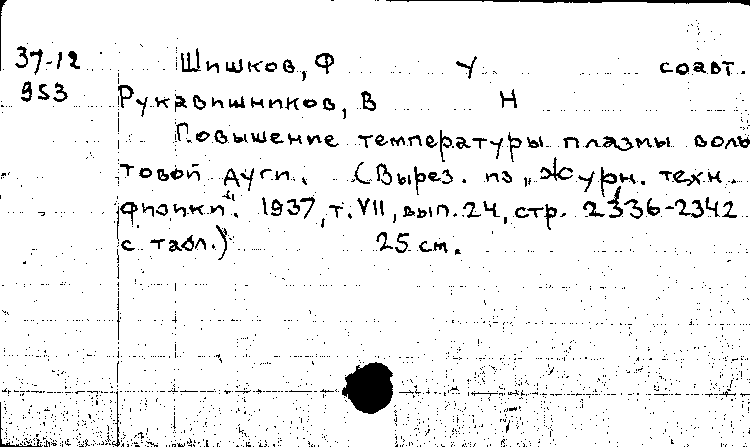 37-12 Шишков, Ф У соавт.
953 Рукавишников, В Н
Повышение температуры плазмы воль
товой дуги. (Вырез. из „Журн. техн.
физики“. 1937, т. VII, вып. 24, стр. 2336-2342
с табл.) 25 см.